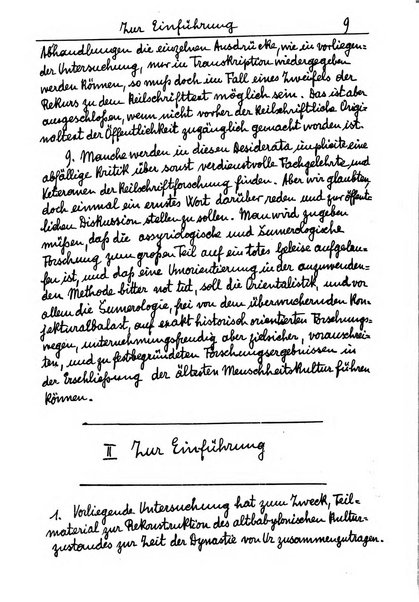 Zur Einführung 9
Abhandlungen die einzelnen Ausdrücke, wie in vorliegen-
der Untersuchung, nur in Transkription wiedergegeben
werden können, so muß doch im Fall eines Zweifels der
Rekurs zu dem Keilschrifttext möglich sein. Das ist aber
ausgeschloßen, wenn nicht vorher der keilschriftliche Origi-
naltext der Öffentlichkeit zugänglich gemacht worden ist.
9. Manche werden in diesen Desiderata implicite eine
abfällige Kritik über sonst verdienstvolle Fachgelehrte und
Veteranen der Keilschriftforschung finden. Aber wir glaubten
doch einmal ein ernstes Wort darüber reden und zur öffent-
lichen Diskussion stellen zu sollen. Man wird zugeben
müßen, daß die assyriologische und sumerologische
Forschung zum großen Teil auf ein totes Geleise aufgelau-
fen ist, und daß eine Umorientierung in der anzuwenden-
den Methode bitter not tut, soll die Orientalistik, und vor
allem die Sumerologie, frei von dem überwuchernden Kon-
jekturalbalast, auf exakt historisch orientierten Forschungs-
wegen, unternehmungsfreudig aber zielsicher, vorauschrei-
ten, und zu festbegründeten Forschungsergebnissen in
der Erschließung der ältesten Menschheitskultur führen
können.
II Zur Einführung
1. Vorliegende Untersuchung hat zum Zweck, Teil-
material zur Rekonstruktion des altbabylonischen Kultur-
zustandes zur Zeit der Dynastie von Ur zusammenzutragen.